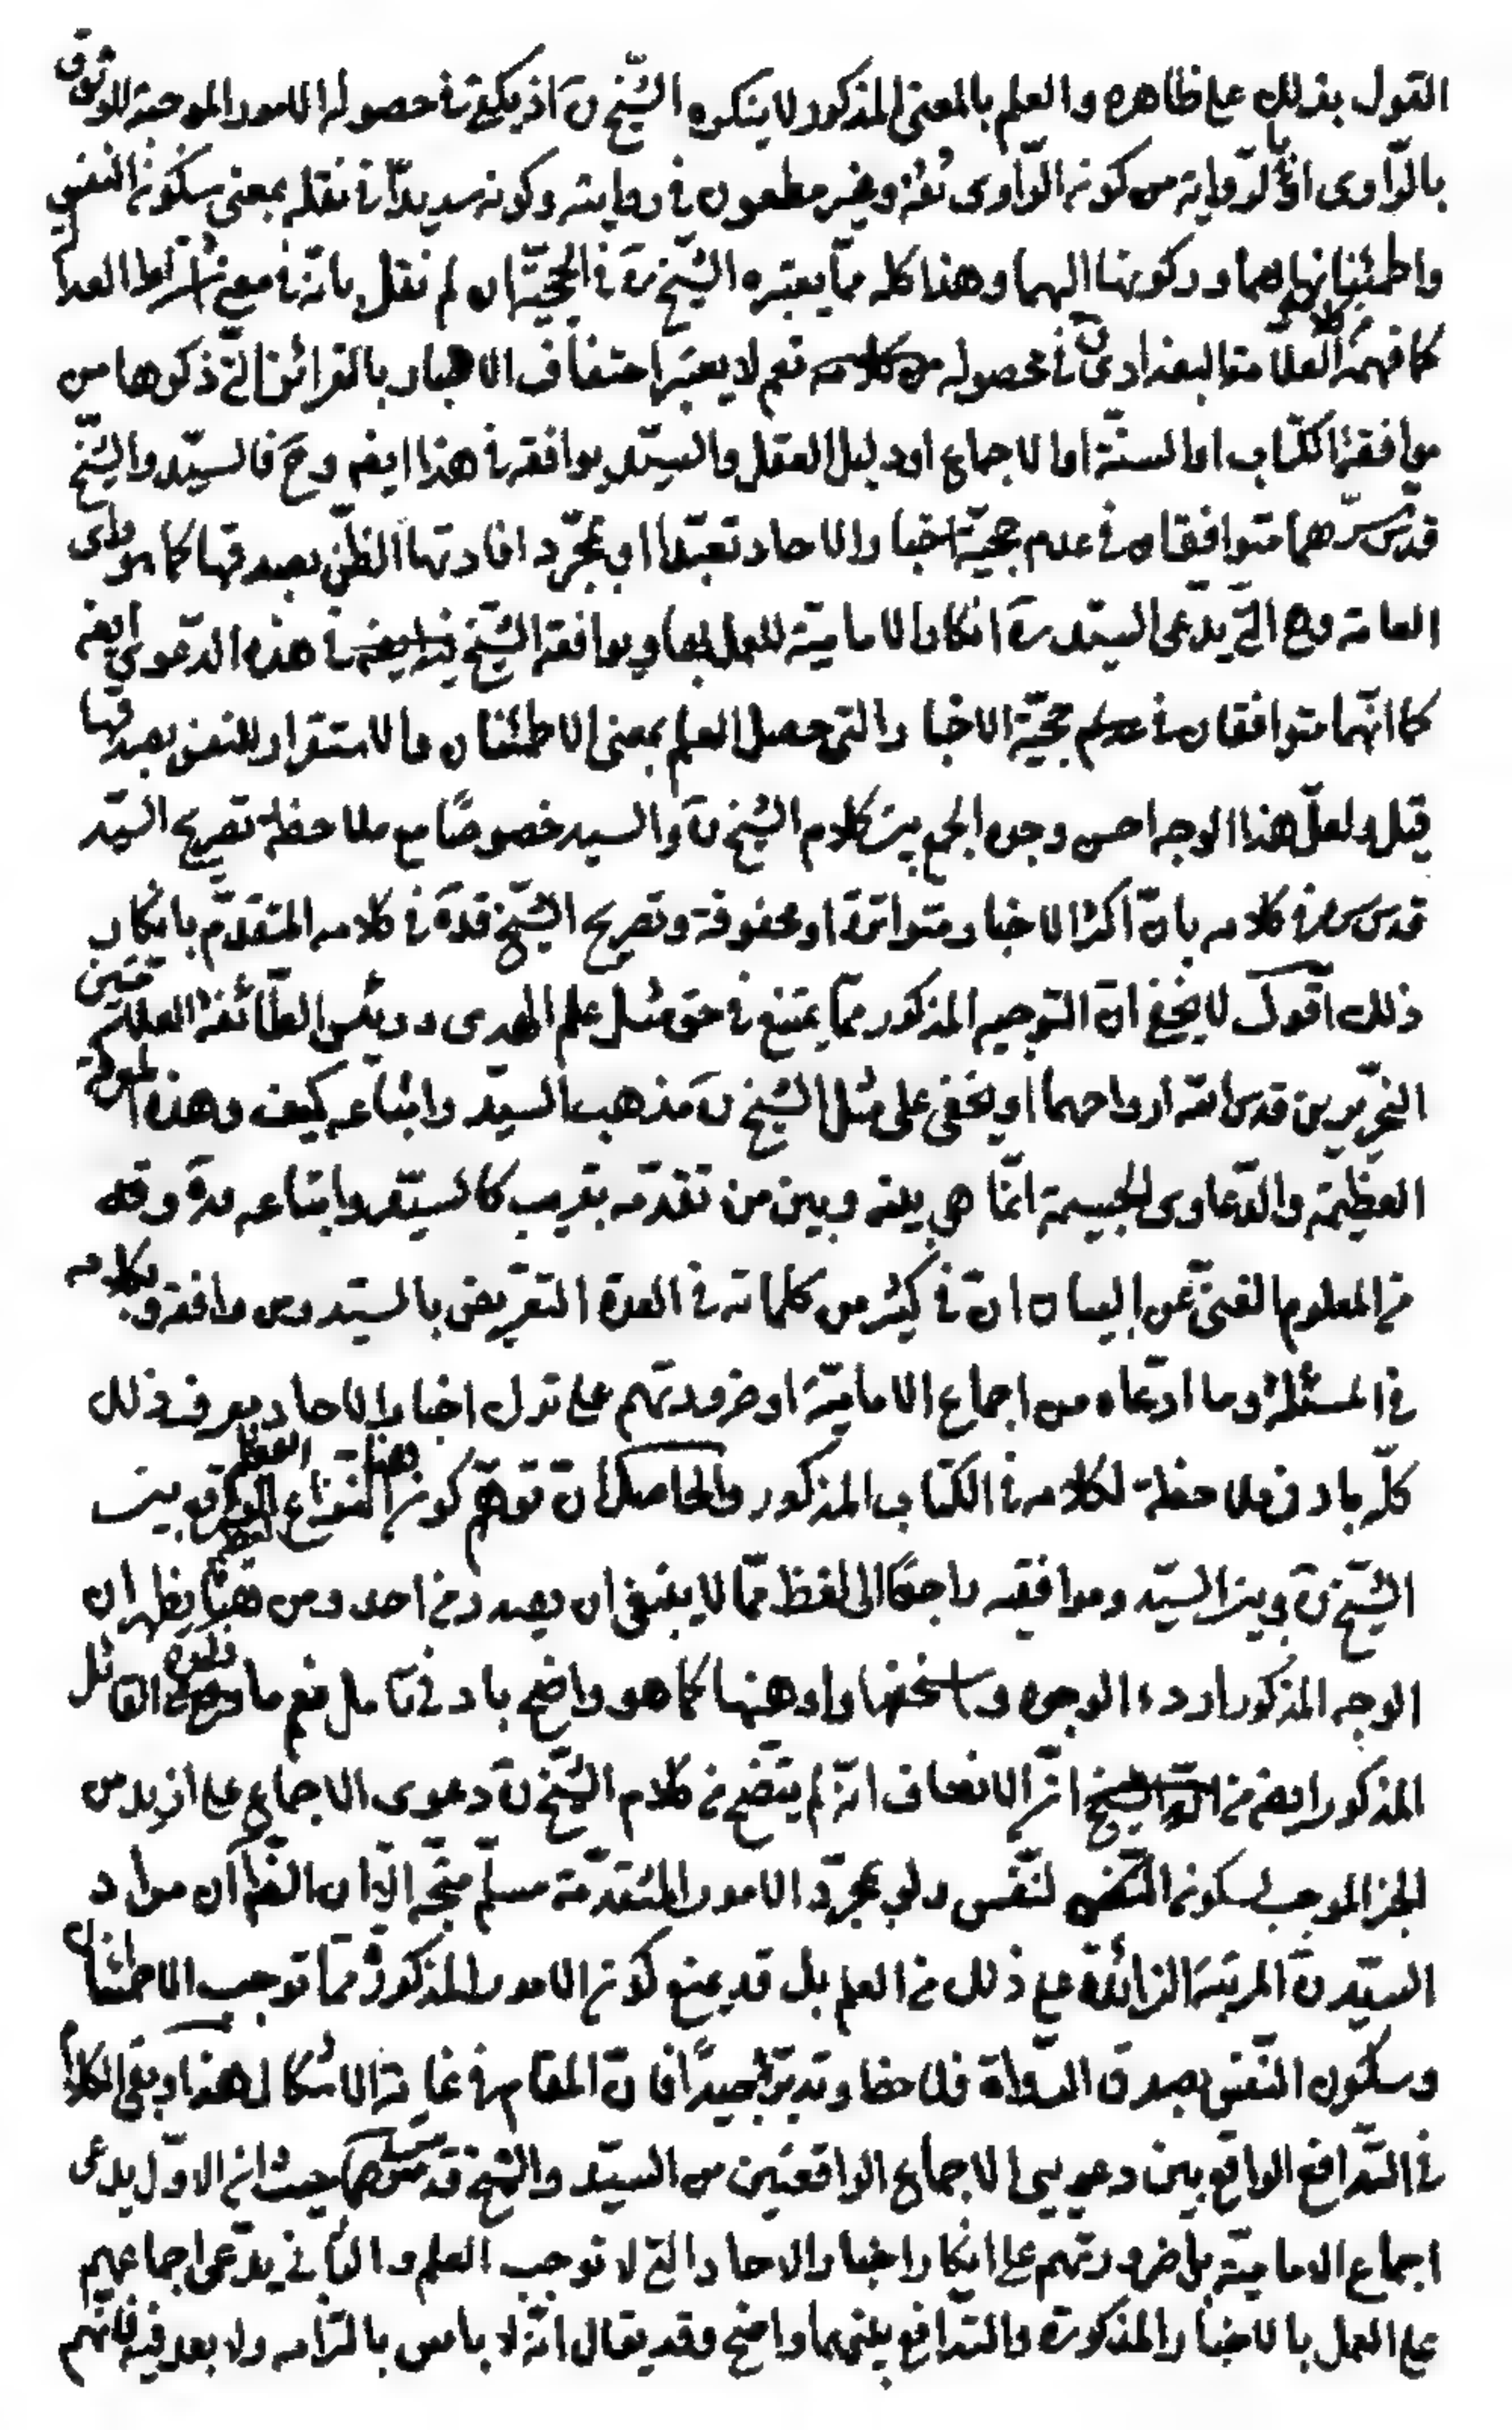 القول بذلك على ظاهره والعلم بالمعنى المذكور لا ينكره الشيخ ره اذ يكفى فى حصوله الامور الموجبة للوثوق
بالراوى او بالرواية من كون الراوى ثقة وغير مطعون فى روايته وكونه سديدا فى نقله بمعنى سكون النفس
واطمئنانها بهما وركونها اليهما وهذا كله مما يعتبره الشيخ ره فى الحجية ان لم نقل بانه مع شرائط العدا
كما فهمه العلامة البغدادى فى محصوله نعم لا يعتبر احتفاف الاخبار بالقرائن التى ذكرها من
موافقة الكتاب او السنة او الاجماع او دليل العقل والسيد يوافقه فى هذا ايضه وح فالسيد والشيخ
قدس سرهما متوافقان فى عدم حجية اخبار الاحاد تعبدا او بمجرد افادتها الظن بصدقها كما هو راى
العامة وهى التى يدعى السيد ره انكار الامامية للعمل بها ويوافقه الشيخ فى هذه الدعوى ايضه
كما انهما متوافقان فى حجية الاخبار التى حصل العلم بمعنى الاطمئنان والاستقرار للنفس بصدقها
قيل ولعل هذا الوجه احسن وجوه الجمع بين كلام الشيخ ره والسيد خصوصا مع ملاحظة تصريح السيد
قدس سره فى كلامه بان اكثر الاخبار متواترة او محفوفة وتصريح الشيخ قده فى كلامه المتقدم بانكار
ذلك اقول لا يخفى ان التوجيه المذكور مما يمتنع فى حق مثل علم الهدى ورئيس الطائفة العلامتين
النحريرين قدس الله ارواحهما او يخفى على مثل الشيخ ره مذهب السيد واتباعه كيف وهذه المعركة
العظيمة والدعاوى الجسيمة انما هى بينه وبين من تقدمه بقريب كالسيد واتباعه قده وقد
من المعلوم الغنى عن البيان ان فى كثير من كلماته فى العدة التعريض بالسيد ومن وافقه وبكلامه
فى المسئلة وما ادعاه من اجماع الامامية او ضرورتهم على ترك اخبار الاحاد يعرف ذلك
كل بادنى ملاحظة لكلامه فى الكتاب المذكور والحاصل ان توهم كون هذا النزاع العظيم بين
الشيخ ره وبين السيد وموافقيه راجعا الى لفظ مما لا ينبغى ان يصدر من احد ومن هنا يظهر ان
الوجه المذكور اردء الوجوه واسخفها واوهنها كما هو واضح بادنى تامل نعم ما ذكره القائل
المذكور ايضه من ان الانصاف انه لم يتضح من كلام الشيخ ره دعوى الاجماع على ازيد من
الخبر الموجب لسكون النفس ولو بمجرد الامور المتقدمة مسلم متجه الا ان الظ ان مراد
السيد ره المرتبة الزائدة على ذلك من العلم بل قد يمنع كون الامور المذكورة مما توجب الاطمئنان
وسكون النفس بصدق الرواة فلاحظ وتدبر جيدا فان المقام فى غاية الاشكال هذا وبقى الكلام
فى التدافع الواقع بين دعويى الاجماع الواقعتين من السيد والشيخ قدس سرهما حيث ان الاول يدعى
اجماع الامامية بل ضرورتهم على انكار اخبار الاحاد التى لا توجب العلم والثانى يدعى اجماعهم
على العمل بالاخبار المذكورة والتدافع بينهما واضح وقد يقال انه لا باس بالتزامه ولا بعد فيه فانهم